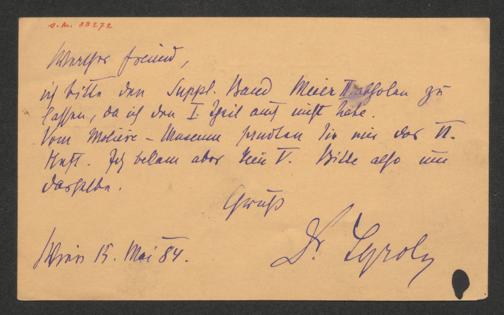 a.A. 33272
Werther Freund,
ich bitte den Suppl. Band Meier II abholen zu
lassen, da ich den I Theil auch nicht habe.
Vom Molière-Museum sandten Sie mir das VI.
Heft. Ich bekam aber kein V. Bitte also um
dasselbe.
Gruß
Wien 15. Mai 84.
Dr.